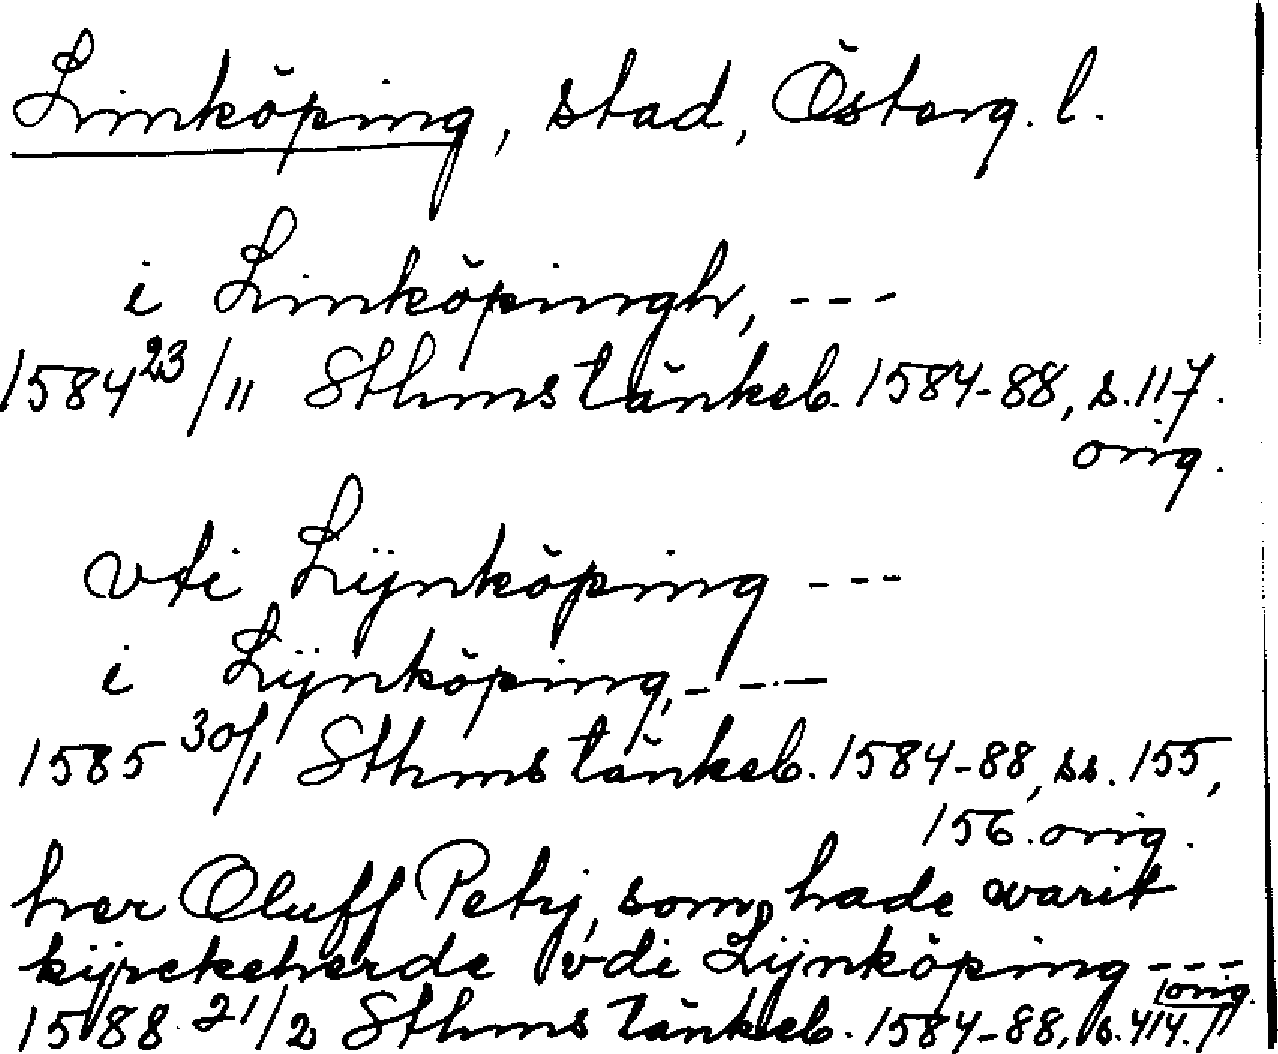 Linköping, stad, Österg. l.
i Linköpingh, ---
1584 23/11 Sthms tänkeb. 1584-88, s. 117.
orig.
vti Lÿnköping ---
i Lÿnköping, ----
1585 30/1 Sthms tänkeb. 1584-88, ss. 155,
156. orig.
her Oluff Petrj, som hade warit
kÿrckeherde vdi Lÿnköping ---
1588 21/2 Sthms tänkeb. 1584-88, s. 414. orig.